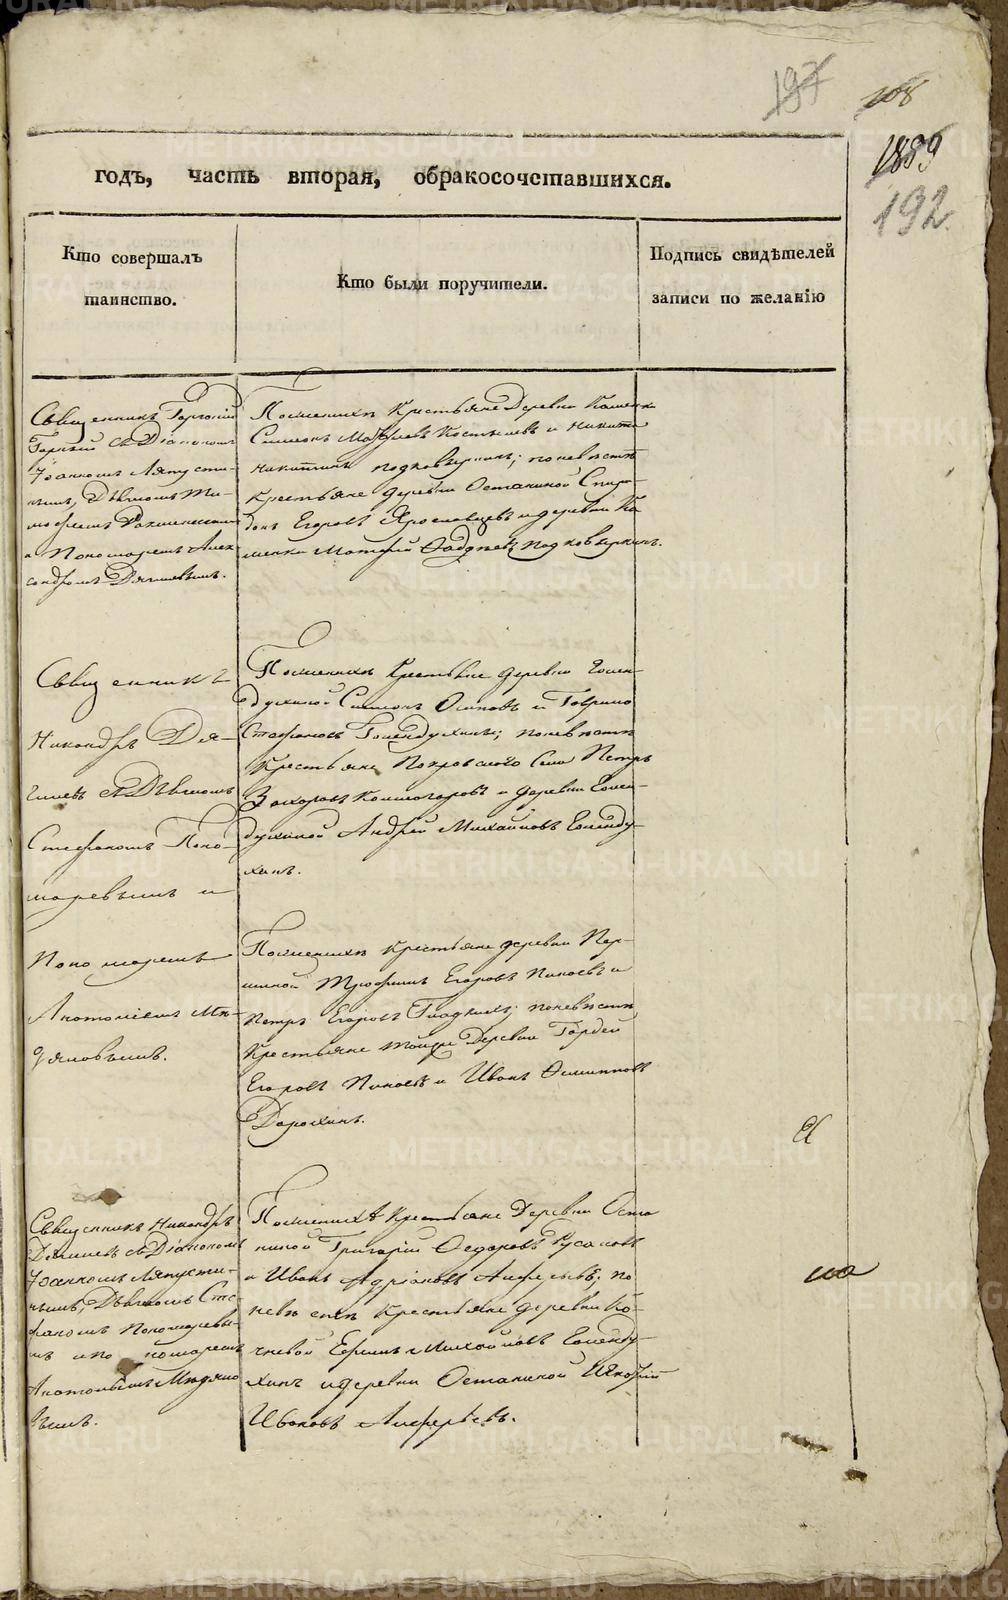 197
108
1889
192
годъ, часть вторая, обракосочетавшихся.
Кто совершалъ
таинство.
Кто были поручители.
Подпись свидѣтелей
записи по желанію
Священникъ
съ Діакономъ
Іоанномъ Ляпусти-
нымъ, Дьячкомъ Ти-
мофеемъ
и Пономаремъ Алек
сандромъ
По женихѣ Крестьяне Деревни Каменки
Симеонъ Матфіевъ Костылевъ и Никита
Никитинъ Подковыркинъ; по невѣстѣ
Крестьяне деревни Останиной Спири-
донъ Егоровъ Ярославцевъ и деревни Ка
менки Матфій Фаддѣевъ Подковыркинъ.
Священникъ
Никандръ Дя-
гилевъ съ Дьячкомъ
Стефаномъ Поно-
маревымъ и
Пономаремъ
Анатоліемъ Ми-
дяновымъ.
По женихѣ Крестьяне деревни Голен-
духиной Симеонъ Осиповъ и Гаврило
Стефановъ Голендухины; по невѣстѣ
Крестьяне Покровскаго Села Петръ
Захаровъ Коммогоровъ и деревни Голен-
духиной Андрей Михайловъ Голенду-
хинъ.
По женихѣ Крестьяне деревни Пер-
шиной Трофимъ Егоровъ Пинаевъ и
Петръ Егоровъ Гладкихъ; по невѣстѣ
Крестьяне тойже Деревни Гордей
Егоровъ Пинаевъ и Иванъ
Дорохинъ.
Священникъ Никандръ
Дягилевъ съ Діакономъ
Іоанномъ Ляпусти-
нымъ, Дьячкомъ Сте-
фаномъ Пономаревы-
мъ и пономаремъ
Анатоліемъ Мидяно
вымъ.
По женихѣ Крестьяне Деревни Оста
ниной Григорій Федоровъ Русаковъ
и Иванъ Адріановъ Алферьевъ; по
невѣстѣ Крестьяне деревни Ко-
чневой Ефимъ Михайловъ Голенду-
хинъ и деревни Останиной Игнатій
Ивановъ Алферьевъ.